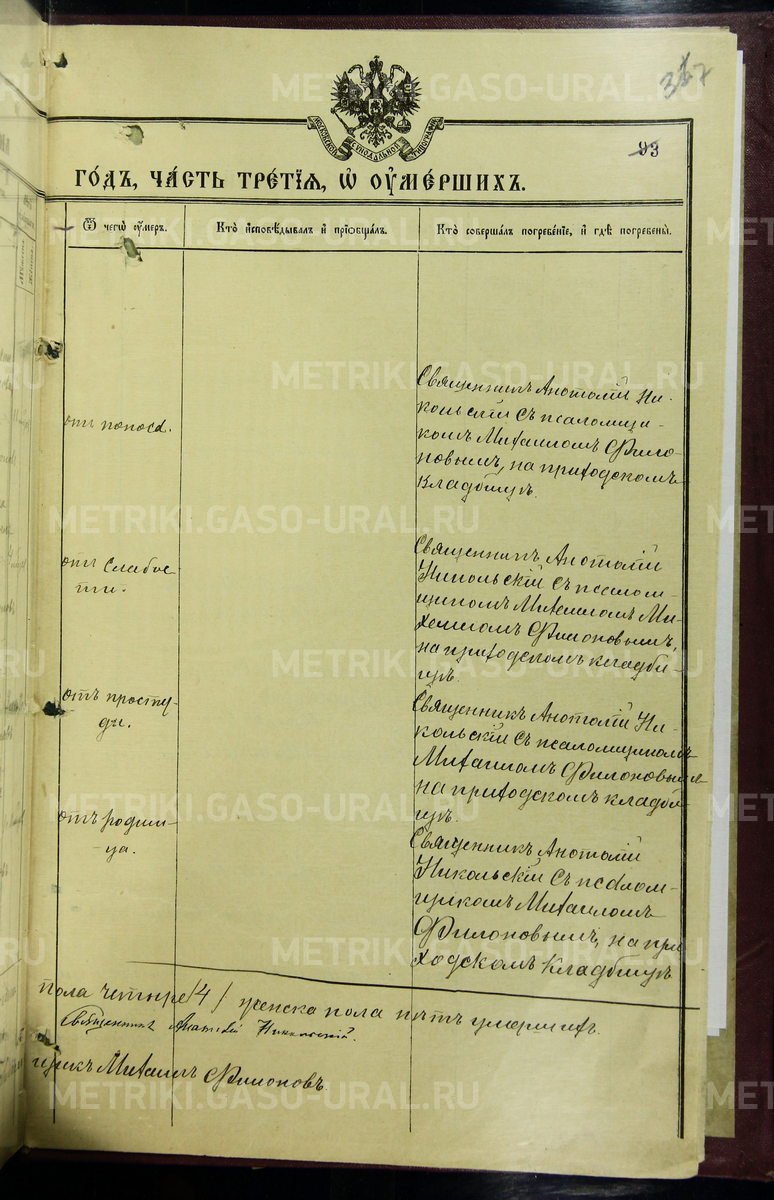 METRIKI.GASO-URAL.RU
317
МОСКОВСКОЙ СѴНОДАЛЬНОЙ ТИПОГРАФІИ
93
ГО́ДЪ, ЧА́СТЬ ТРЕ́ТІѦ, Ѡ҆ ОУ҆МЕ́РШИХЪ.
Ѿ чегѡ̀ ᲂу҆́меръ.
Кто̀ и҆сповѣ́дывалъ и҆ прїѻбща́лъ.
Кто̀ соверша́лъ погребе́нїе, и҆ гдѣ̀ погребены̀.
отъ поноса.
Священникъ Анатолій Ни-
кольскій съ псаломщи-
комъ Михаиломъ Фило-
новымъ, на приходскомъ
кладбищѣ.
отъ слабос-
ти.
Священникъ Анатолій
Никольскій съ псалом-
щикомъ Михаиломъ Ми-
хаиломъ Филоновымъ,
на приходскомъ кладби-
щѣ.
отъ просту-
ды.
Священникъ Анатолій Ни-
кольскій съ псаломщикомъ
Михаиломъ Филоновымъ
на приходскомъ кладби-
щѣ.
отъ родим-
ца.
Священникъ Анатолій
Никольскій съ псалом-
щикомъ Михаиломъ
Филоновымъ, на при-
ходскомъ кладбищѣ
пола четыре /4/ женска пола нѣтъ умершихъ.
Священникъ Анатолій Никольскій.
щикъ Михаилъ Филоновъ.